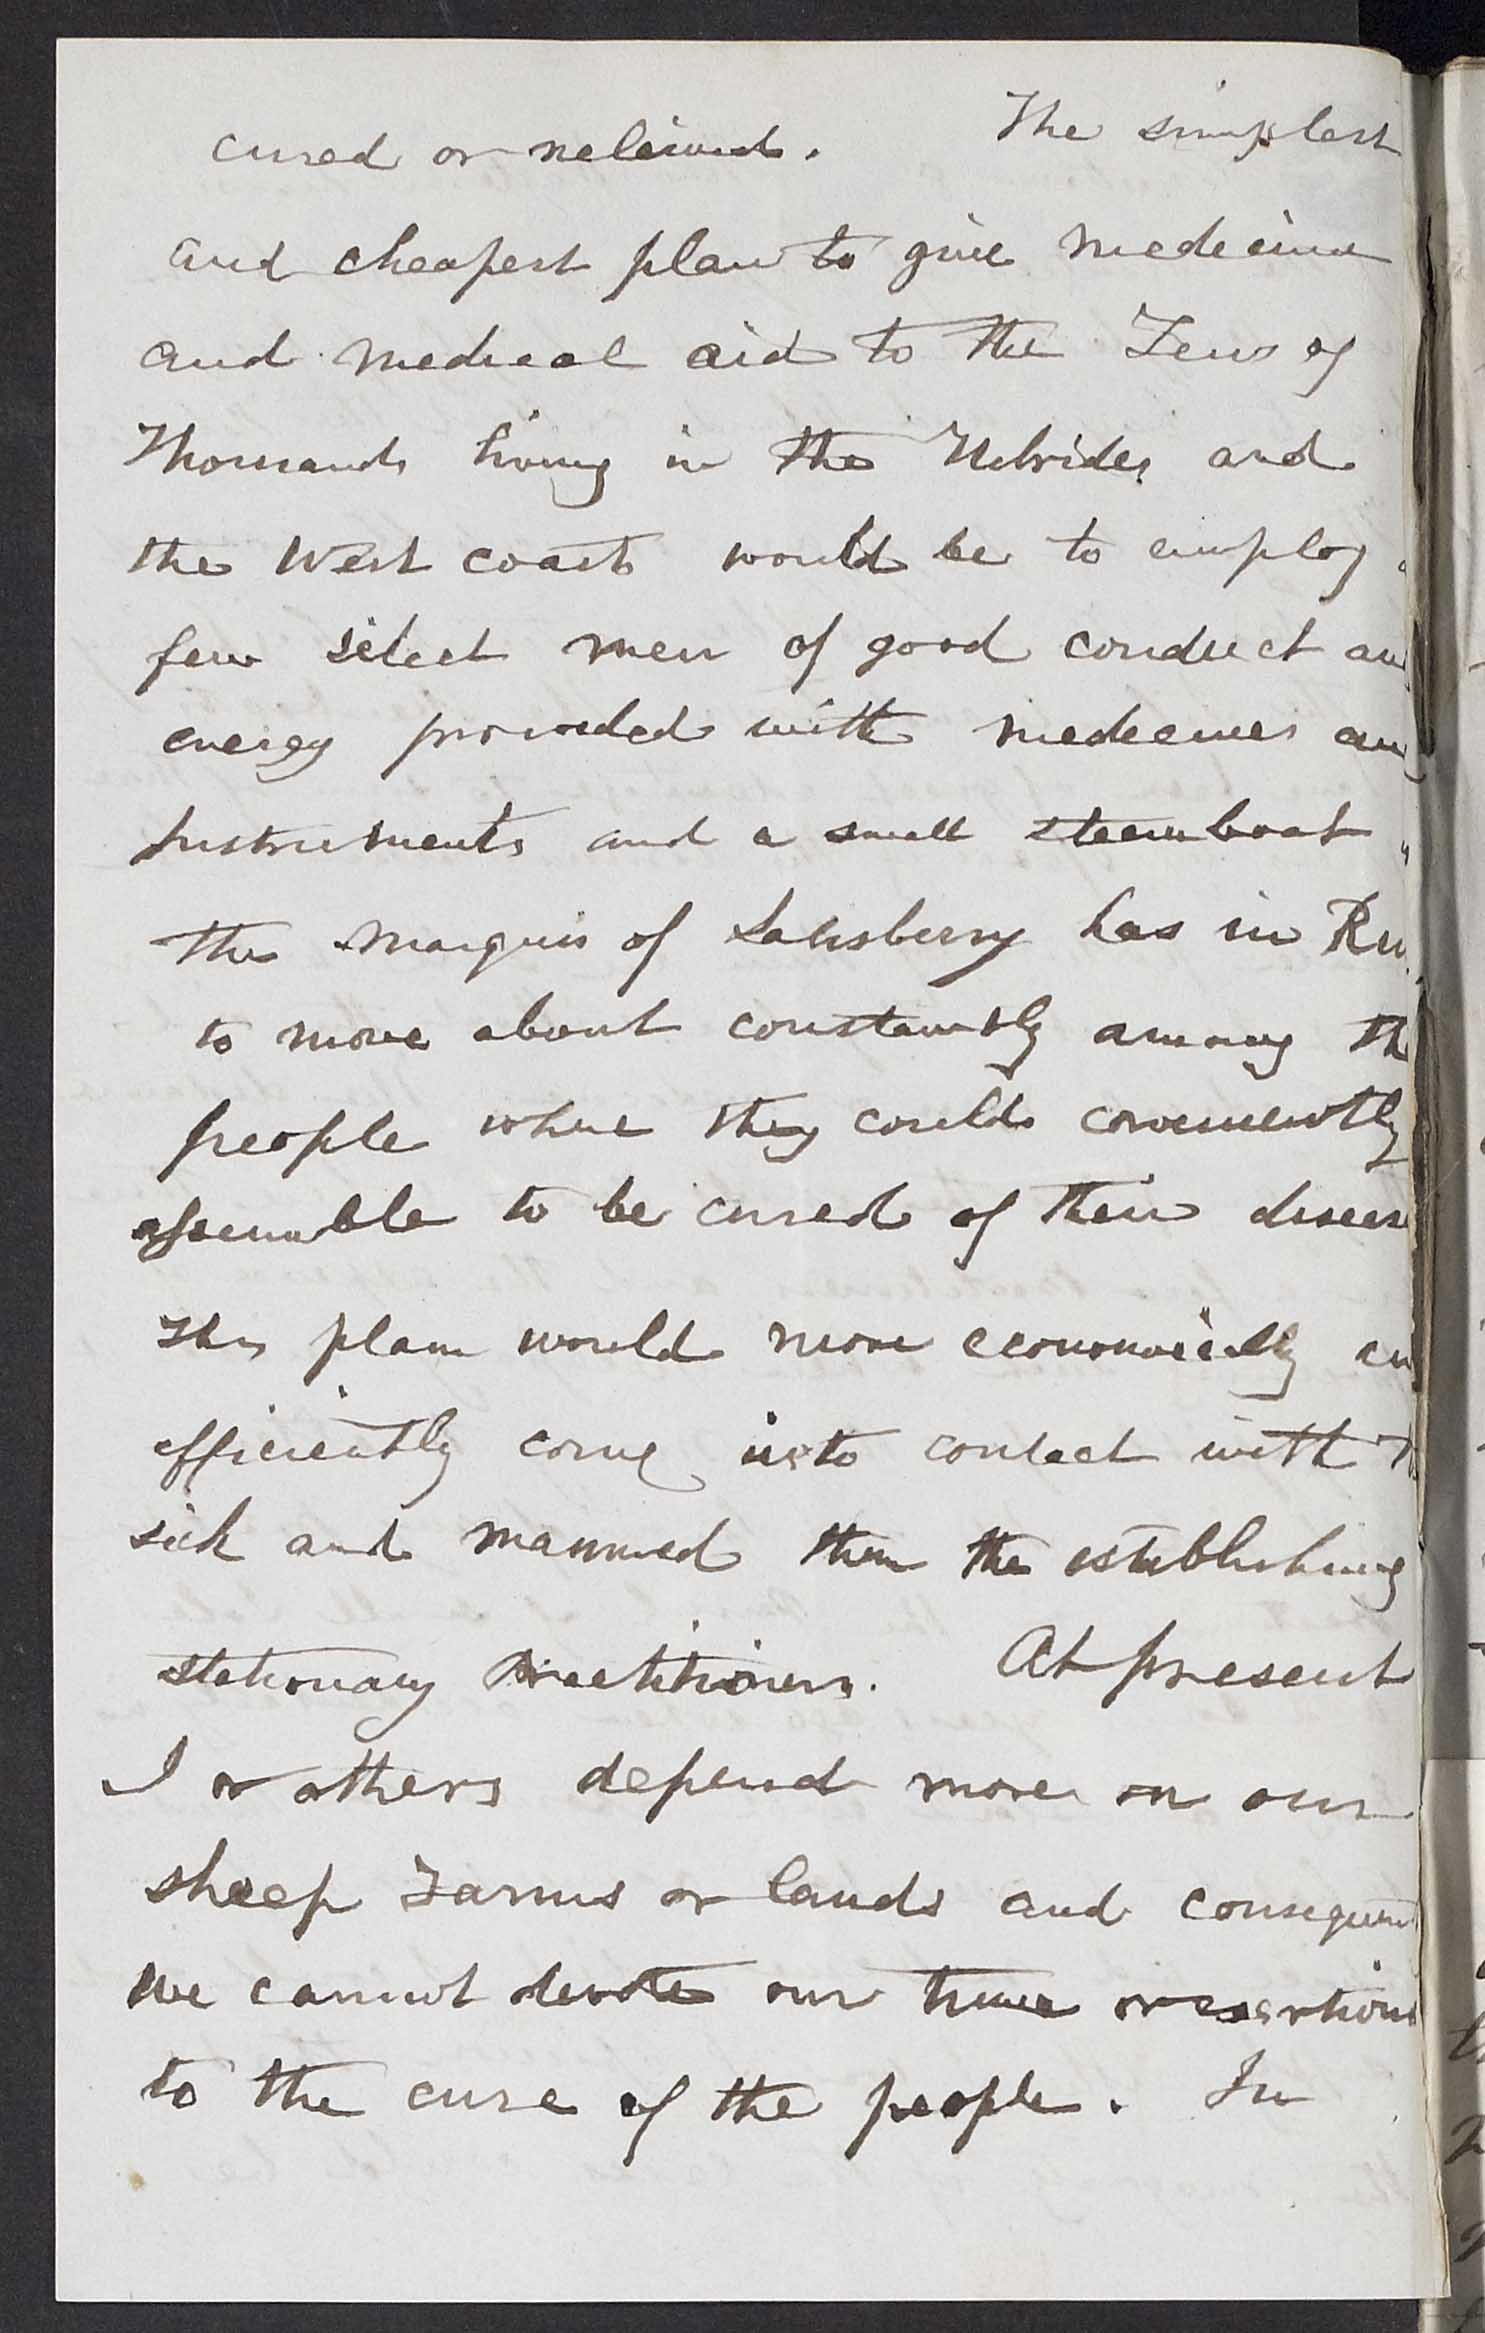 cured or relieved. The simplest
and cheapest plan to give medecine
and medical aid to the Tens of
Thousands living in the Hebrides and
the West coast would be to employ
few select men of good conduct an
energy provided with medecines an
Instruments and a small steamboat
the Marquis of Salisberry has in Ru
to move about constantly among th
people where they could conveniently
assemble to be cured of their diseas
This plan would more economically an
efficiently come into contact with
sick and maimed than the establishing
stationary Practitioners. At present
I or others depend more on our
sheep Farms or lands and consequent
we cannot devote our time or exertions
to the cure of the people. In